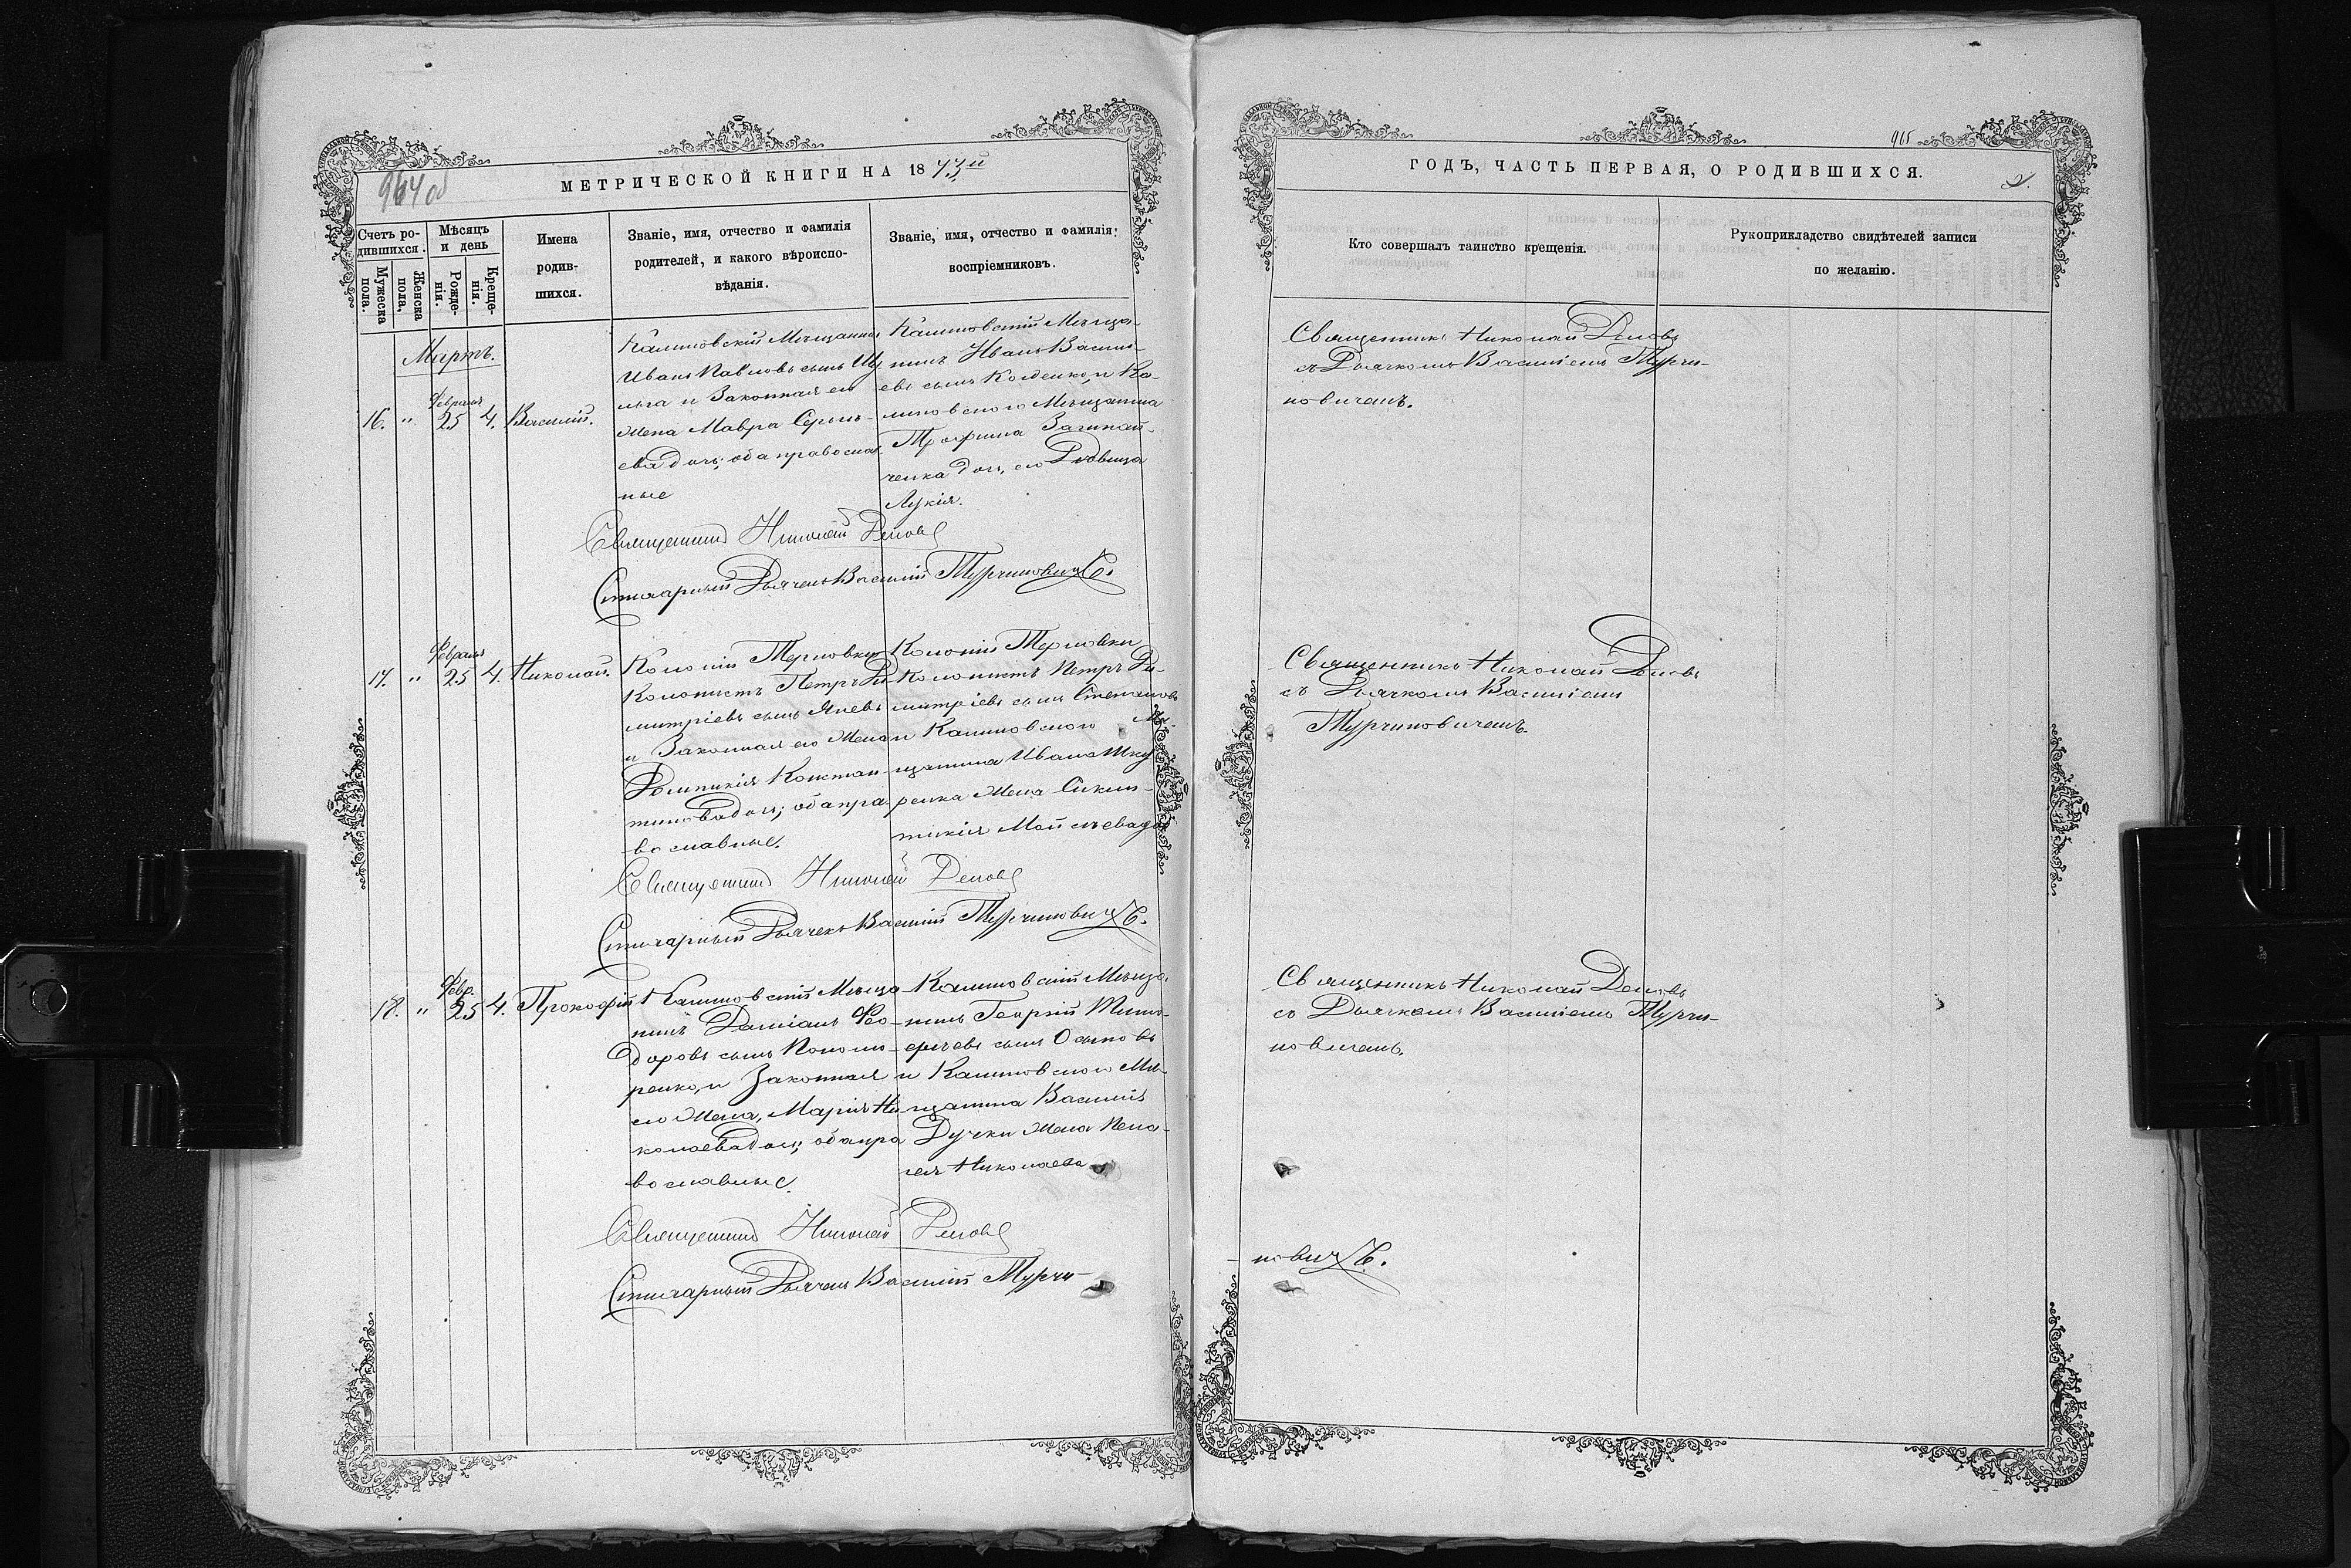 964 об
МЕТРИЧЕСКОЙ КНИГИ НА 1873й
Счетъ ро-
дившихся.
Мужеска
пола.
Женска
пола.
Мѣсяцъ
и день
Рожде-
нія.
Креще-
нія.
Имена
родив-
шихся.
Званіе, имя, отчество и фамилія
родителей, и какого вѣроиспо-
вѣданія.
Званіе, имя, отчество и фамилія
воспріемниковъ.
Мартъ.
16. " Февраля 25 4. Василій.
Калиновскій Мѣщанинъ
Иванъ Павловъ сынъ
и Законная его
Жена Мавра Сергѣ-
ева дочь; оба православ-
ные
Калиновскій Мѣща-
нинъ Иванъ Васил-
евъ сынъ и Ка-
линовского Мѣщанина
Трофима
дочь его Дѣвица
Лукія.
Священникъ Николай
Стихарный Дьячекъ Василій Турчиновичъ.
17. " Февраля 25 4. Николай.
Колоніи Терновки
Колонистъ Петръ Ди-
митріевъ сынъ Яневъ
и Законная его Жена
Домникія Констан-
тинова дочь; оба пра-
вославные.
Колоніи Терновки
Колонистъ Петръ Ди-
митріевъ сынъ Степановъ
и Калиновского Мѣ-
щанина Ивана Шку
ренка Жена Синкли-
тикія Мойсѣева до
Священникъ Николай
Стихарный Дьячекъ Василій Турчиновичъ.
18. " Февр. 25 4. Прокофій
Калиновскій Мѣща
нинъ Даміанъ Ѳео-
доровъ сынъ Поно
ренко, и Законная
его Жена, Марія Ни-
колаева дочь; оба пра
вославные.
Калиновскій Мѣща-
нинъ Георгій Тимо-
ѳеевъ сынъ
и Калиновского Мѣ-
щанина Василія
Дучки Жена Пела-
гея Николаева
Священникъ Николай
Стихарный Дьячекъ Василій Турчи-
965
ГОДЪ, ЧАСТЬ ПЕРВАЯ, О РОДИВШИХСЯ.
Кто совершалъ таинство крещенія.
Рукоприкладство свидѣтелей записи
по желанію.
Священникъ Николай
съ Дьячкомъ Василіемъ Турчи-
новичемъ.
Священникъ Николай
съ Дьячкомъ Василіемъ
Турчиновичемъ.
Священникъ Николай
съ Дьячкомъ Василіемъ Турчи-
новичемъ.
- новичъ.